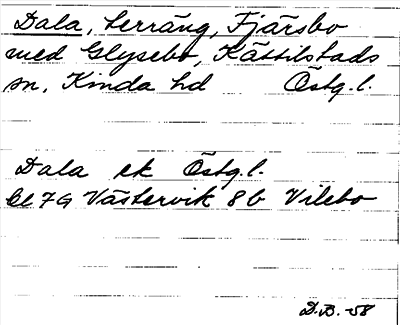 Dala, Lerräng, Fjärsbo
med Glysebo, Kättilstads
sn, Kinda hd Östg.l.
Dala ek Östg.l.
bl 7G Västervik 8b Vilebo
D.B. -58